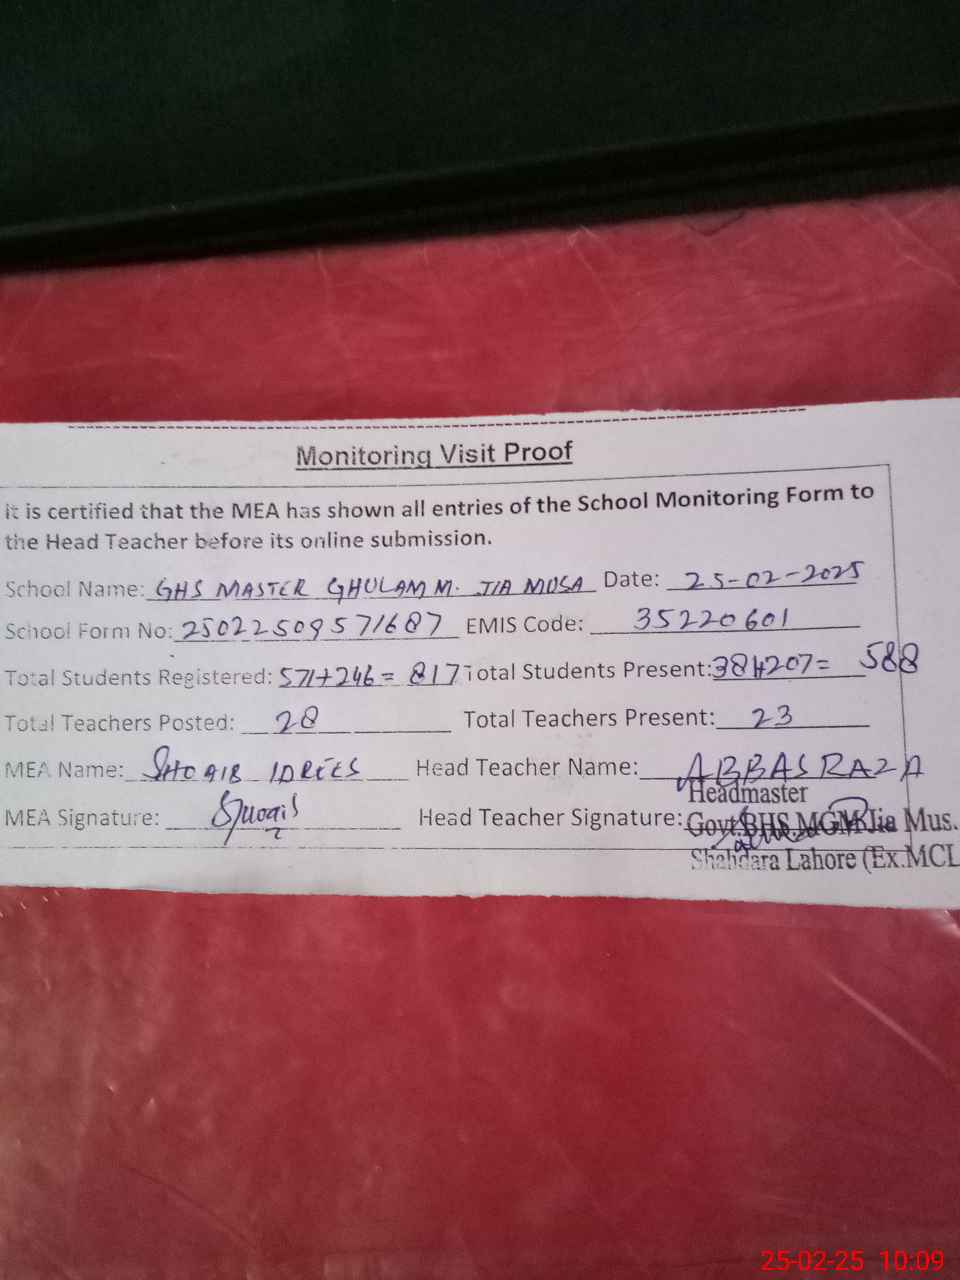 Monitoring Visit Proof
it is certified that the MEA has shown all entries of the School Monitoring Form to
the Head Teacher before its online submission.
School Name: GHS MASTER GHULAM M. JIA MUSA Date: 25-02-2025
School Form No: 25022509571687 EMIS Code: 35220601
Total Students Registered: 571+246= 817 Total Students Present: 381+207= 588
Total Teachers Posted: 28 Total Teachers Present: 23
MEA Name: SHOAIB IDREES Head Teacher Name: ABBAS RAZA
Headmaster
MEA Signature: Shoaib Head Teacher Signature: Govt.BHS MGMKJia Mus.
Shahdara Lahore (Ex.MCL
25-02-25 10:09